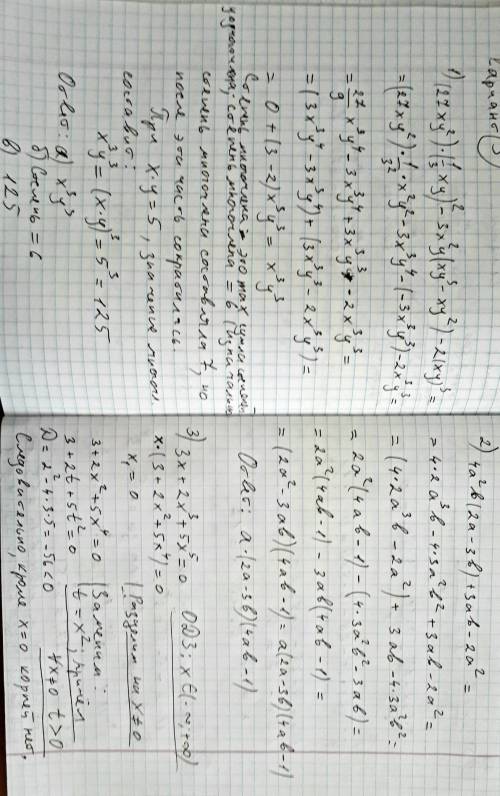 Вариант (3)
1) (27xy²)·(⅓xy)² - 3x²(xy⁴ - xy²) - 2(xy)³ =
= (27xy²)·1/3²·x²y² - 3x³y⁴ - (-3x³y³) - 2x³y³ =
= 27/9 x³y⁴ - 3x³y⁴ + 3x³y³ - 2x³y³ =
= (3x³y⁴ - 3x³y⁴) + (3x³y³ - 2x³y³) =
= 0 + (3-2)x³y³ = x³y³
Степень многочлена - это max сумма степеней
одночлена; степень многочлена = 6 (Изначально
степень многочлена составляла 7, но
после эта часть сократилась.
При x·y = 5, значение многоч.
составит:
x³y³ = (x·y)³ = 5³ = 125
Ответ: а) x³y³
б) степень = 6
в) 125
2) 4a²b(2a-3b) + 3ab - 2a² =
= 4·2a³b - 4·3a²b² + 3ab - 2a² =
= (4·2a³b - 2a²) + 3ab - 4·3a²b² =
= 2a²(4ab-1) - (4·3a²b² - 3ab) =
= 2a²(4ab-1) - 3ab(4ab-1) =
= (2a² - 3ab)(4ab-1) = a(2a-3b)(4ab-1)
Ответ: a·(2a-3b)(4ab-1)
3) 3x + 2x³ + 5x⁵ = 0 ОДЗ: x∈(-∞;+∞)
x·(3 + 2x² + 5x⁴) = 0
x₁ = 0 | Разделим на x≠0
3 + 2x² + 5x⁴ = 0 | Заменим:
3 + 2t + 5t² = 0 | t = x², причём
D = 2² - 4·3·5 = -56 < 0 ∀x≠0 t>0
Следовательно, кроме x=0 корней нет.